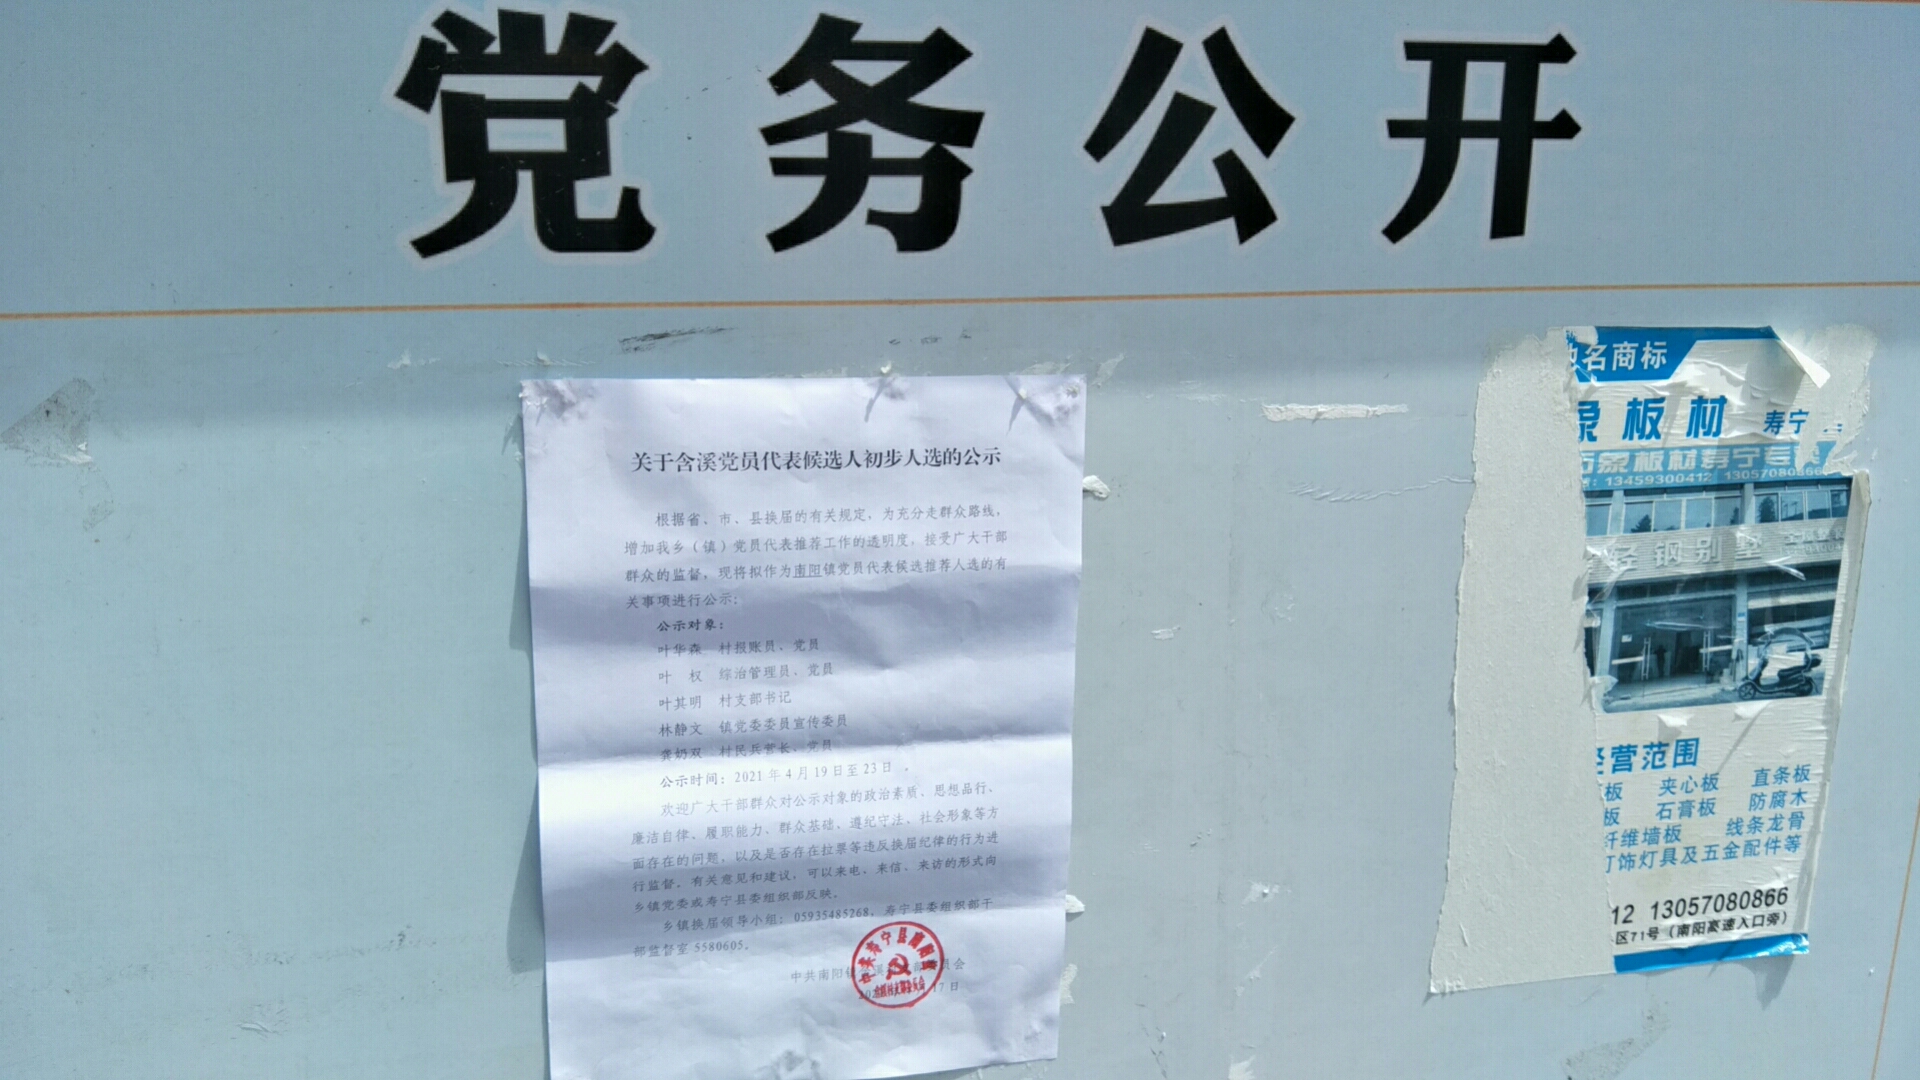 党务公开
关于含溪党员代表候选人初步人选的公示
根据省、市、县换届的有关规定，为充分走群众路线，
增加我乡（镇）党员代表推荐工作的透明度，接受广大干部
群众的监督，现将拟作为南阳镇党员代表候选推荐人选的有
关事项进行公示：
公示对象：
叶华森 村报账员、党员
叶 权 综治管理员、党员
叶其明 村支部书记
林静文 镇党委委员宣传委员
龚奶双 村民兵营长、党员
公示时间：2021年4月19日至23日 。
欢迎广大干部群众对公示对象的政治素质、思想品行、
廉洁自律、履职能力、群众基础、遵纪守法、社会形象等方
面存在的问题，以及是否存在拉票等违反换届纪律的行为进
行监督。有关意见和建议，可以来电、来信、来访的形式向
乡镇党委或寿宁县委组织部反映。
乡镇换届领导小组：05935485268，寿宁县委组织部干
部监督室5580605。
中共南阳镇
委员会
17日
中共寿宁县南阳
名商标
象板材 寿宁
万象板材寿宁专
13459300412 13057080866
轻钢别墅
经营范围
板 夹心板 直条板
板 石膏板 防腐木
纤维墙板 线条龙骨
灯饰灯具及五金配件等
12 13057080866
区71号（南阳高速入口旁）